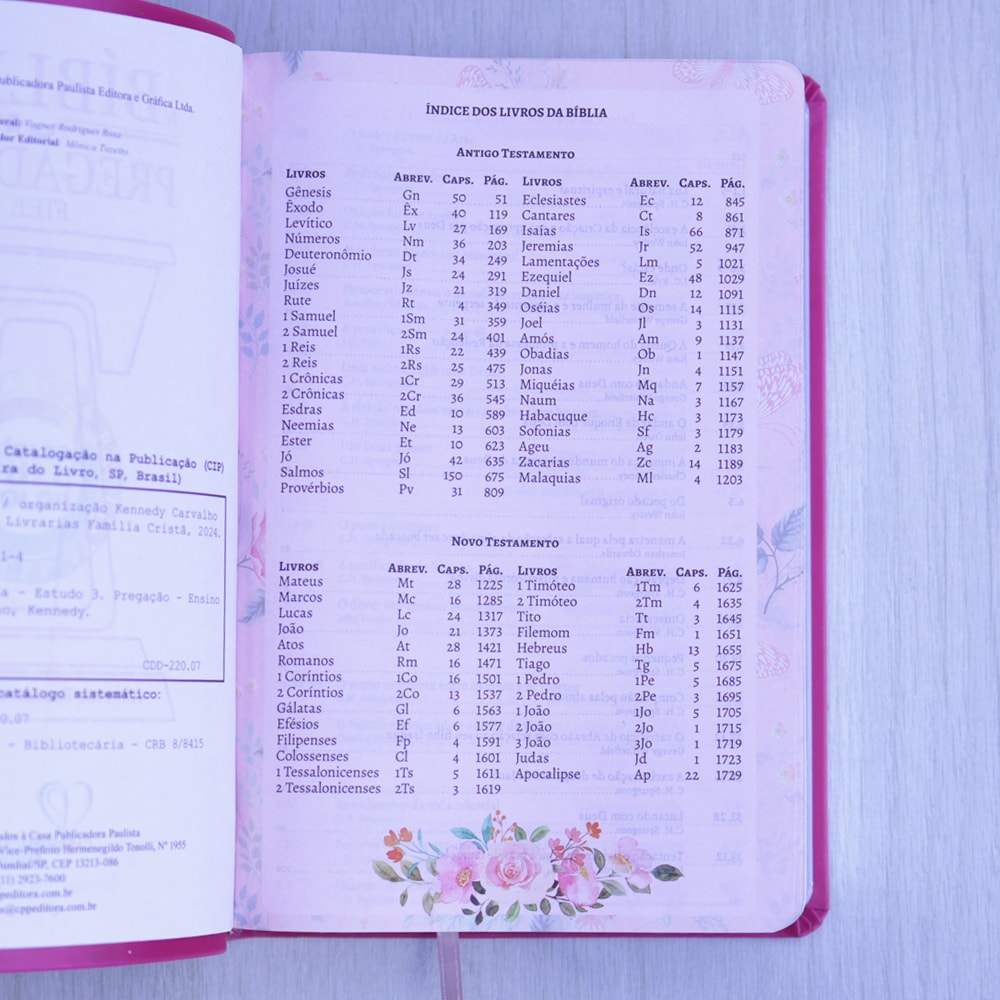 ublicadora Paulista Editora e Gráfica Ltda.
eral: Vagner Rodrigues Rosa
or Editorial: Mônica Tozetto
Catalogação na Publicação (CIP)
ra do Livro, SP, Brasil)
/ organização Kennedy Carvalho
Livrarias Família Cristã, 2024.
i-4
a - Estudo 3. Pregação - Ensino
o, Kennedy.
CDD-220.07
catálogo sistemático:
0.07
- Bibliotecária - CRB 8/8415
ados à Casa Publicadora Paulista
Vice-Prefeito Hermenegildo Tonolli, Nº 1955
undiaí/SP, CEP 13213-086
11) 2923-7600
peditora.com.br
o@cppeditora.com.br
ÍNDICE DOS LIVROS DA BÍBLIA
ANTIGO TESTAMENTO
LIVROS ABREV. CAPS. PÁG. LIVROS ABREV. CAPS. PÁG.
Gênesis Gn 50 51 Eclesiastes Ec 12 845
Êxodo Êx 40 119 Cantares Ct 8 861
Levítico Lv 27 169 Isaías Is 66 871
Números Nm 36 203 Jeremias Jr 52 947
Deuteronômio Dt 34 249 Lamentações Lm 5 1021
Josué Js 24 291 Ezequiel Ez 48 1029
Juízes Jz 21 319 Daniel Dn 12 1091
Rute Rt 4 349 Oséias Os 14 1115
1 Samuel 1Sm 31 359 Joel Jl 3 1131
2 Samuel 2Sm 24 401 Amós Am 9 1137
1 Reis 1Rs 22 439 Obadias Ob 1 1147
2 Reis 2Rs 25 475 Jonas Jn 4 1151
1 Crônicas 1Cr 29 513 Miquéias Mq 7 1157
2 Crônicas 2Cr 36 545 Naum Na 3 1167
Esdras Ed 10 589 Habacuque Hc 3 1173
Neemias Ne 13 603 Sofonias Sf 3 1179
Ester Et 10 623 Ageu Ag 2 1183
Jó Jó 42 635 Zacarias Zc 14 1189
Salmos Sl 150 675 Malaquias Ml 4 1203
Provérbios Pv 31 809
NOVO TESTAMENTO
LIVROS ABREV. CAPS. PÁG. LIVROS ABREV. CAPS. PÁG.
Mateus Mt 28 1225 1 Timóteo 1Tm 6 1625
Marcos Mc 16 1285 2 Timóteo 2Tm 4 1635
Lucas Lc 24 1317 Tito Tt 3 1645
João Jo 21 1373 Filemom Fm 1 1651
Atos At 28 1421 Hebreus Hb 13 1655
Romanos Rm 16 1471 Tiago Tg 5 1675
1 Coríntios 1Co 16 1501 1 Pedro 1Pe 5 1685
2 Coríntios 2Co 13 1537 2 Pedro 2Pe 3 1695
Gálatas Gl 6 1563 1 João 1Jo 5 1705
Efésios Ef 6 1577 2 João 2Jo 1 1715
Filipenses Fp 4 1591 3 João 3Jo 1 1719
Colossenses Cl 4 1601 Judas Jd 1 1723
1 Tessalonicenses 1Ts 5 1611 Apocalipse Ap 22 1729
2 Tessalonicenses 2Ts 3 1619